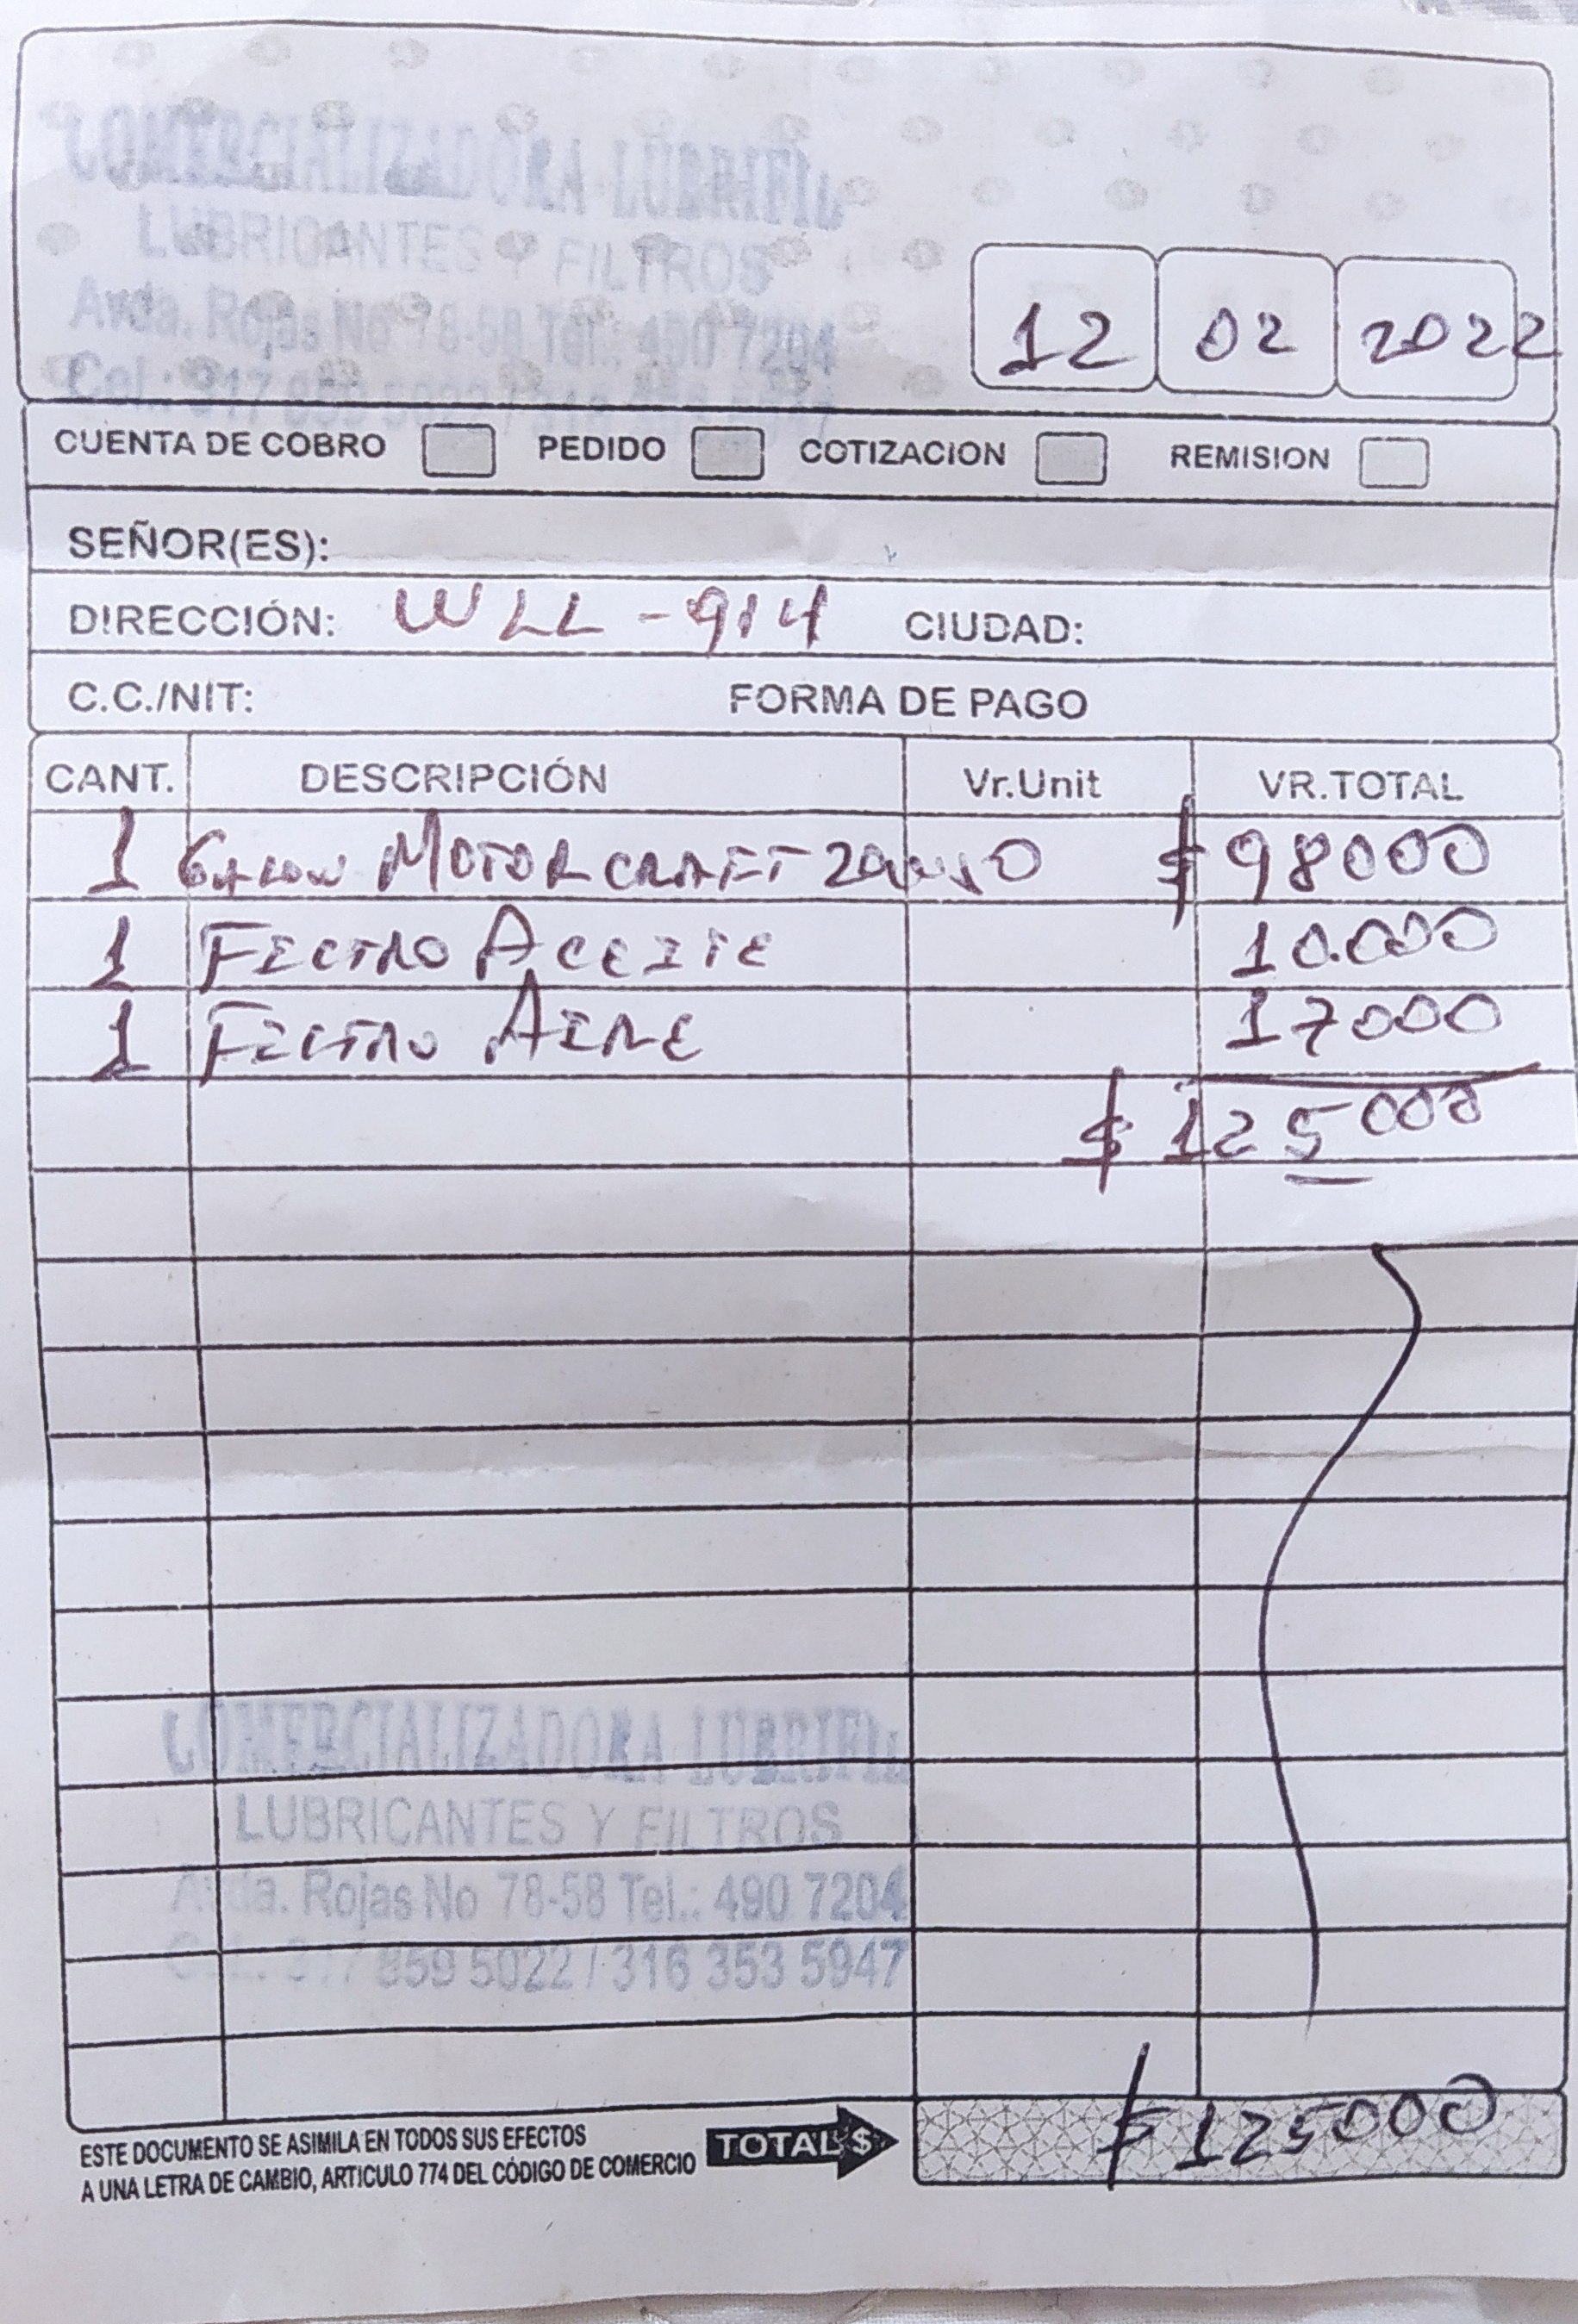 COMERCIALIZADORA LUBRIFIL
LUBRICANTES Y FILTROS
Avda. Rojas No 78-58 Tel.: 490 7204
Cel.: 317 859 5022 / 316 353 5947
12 02 2022
CUENTA DE COBRO PEDIDO COTIZACION REMISION
SEÑOR(ES):
DIRECCIÓN: WLL-914 CIUDAD:
C.C./NIT: FORMA DE PAGO
CANT. DESCRIPCIÓN Vr.Unit VR.TOTAL
1 Galon MOTORCRAFT $98000
1 FILTRO ACEITE 10.000
1 FILTRO AIRE 17000
$125000
COMERCIALIZADORA LUBRIFIL
LUBRICANTES Y FILTROS
Avda. Rojas No 78-58 Tel.: 490 7204
CEL.: 317 859 5022 / 316 353 5947
ESTE DOCUMENTO SE ASIMILA EN TODOS SUS EFECTOS
A UNA LETRA DE CAMBIO, ARTICULO 774 DEL CÓDIGO DE COMERCIO
TOTAL $ $125000